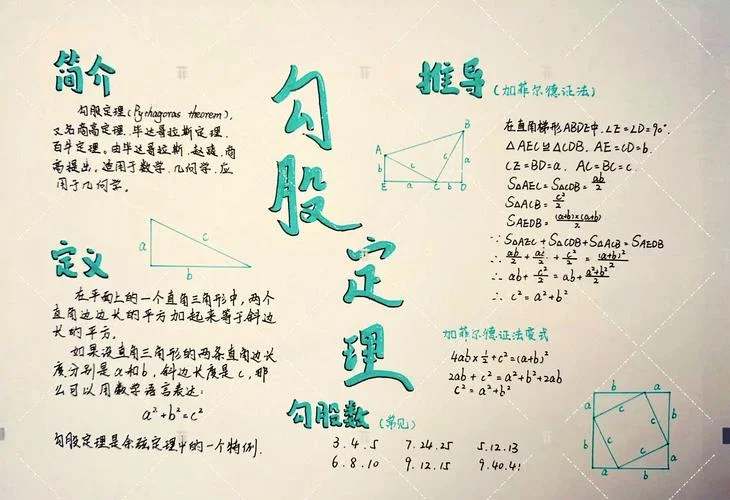 简介
勾股定理(Pythagoras theorem),
又名商高定理.毕达哥拉斯定理.
百牛定理。由毕达哥拉斯.赵爽.商
高提出。适用于数学.几何学.应
用于几何学。
定义
a
c
b
在平面上的一个直角三角形中,两个
直角边边长的平方加起来等于斜边
长的平方。
如果设直角三角形的两条直角边长
度分别是a和b,斜边长度是c,那
么可以用数学语言表达:
a²+b²=c²
勾股定理是余弦定理中的一个特例.
勾股定理
勾股数(常见)
3.4.5 7.24.25 5.12.13
6.8.10 9.12.15 9.40.41
推导(加菲尔德证法)
A
B
b
c
c
a
E
a
C
b
D
在直角梯形ABDE中.∠E=∠D=90°.
△AEC≌△CDB. AE=CD=b.
CE=BD=a. AC=BC=c.
S△AEC=S△CDB=ab/2
S△ACB=c²/2
SAEDB=(a+b)×(a+b)/2
∵S△AEC+S△CDB+S△ACB=SAEDB
∴ab/2+ab/2+c²/2=(a+b)²/2
∴ab+c²/2=ab+a²+b²/2
∴c²=a²+b²
加菲尔德证法变式
4ab×½+c²=(a+b)²
2ab+c²=a²+b²+2ab
c²=a²+b²
b
a
a
c
b
c
c
b
c
a
a
b